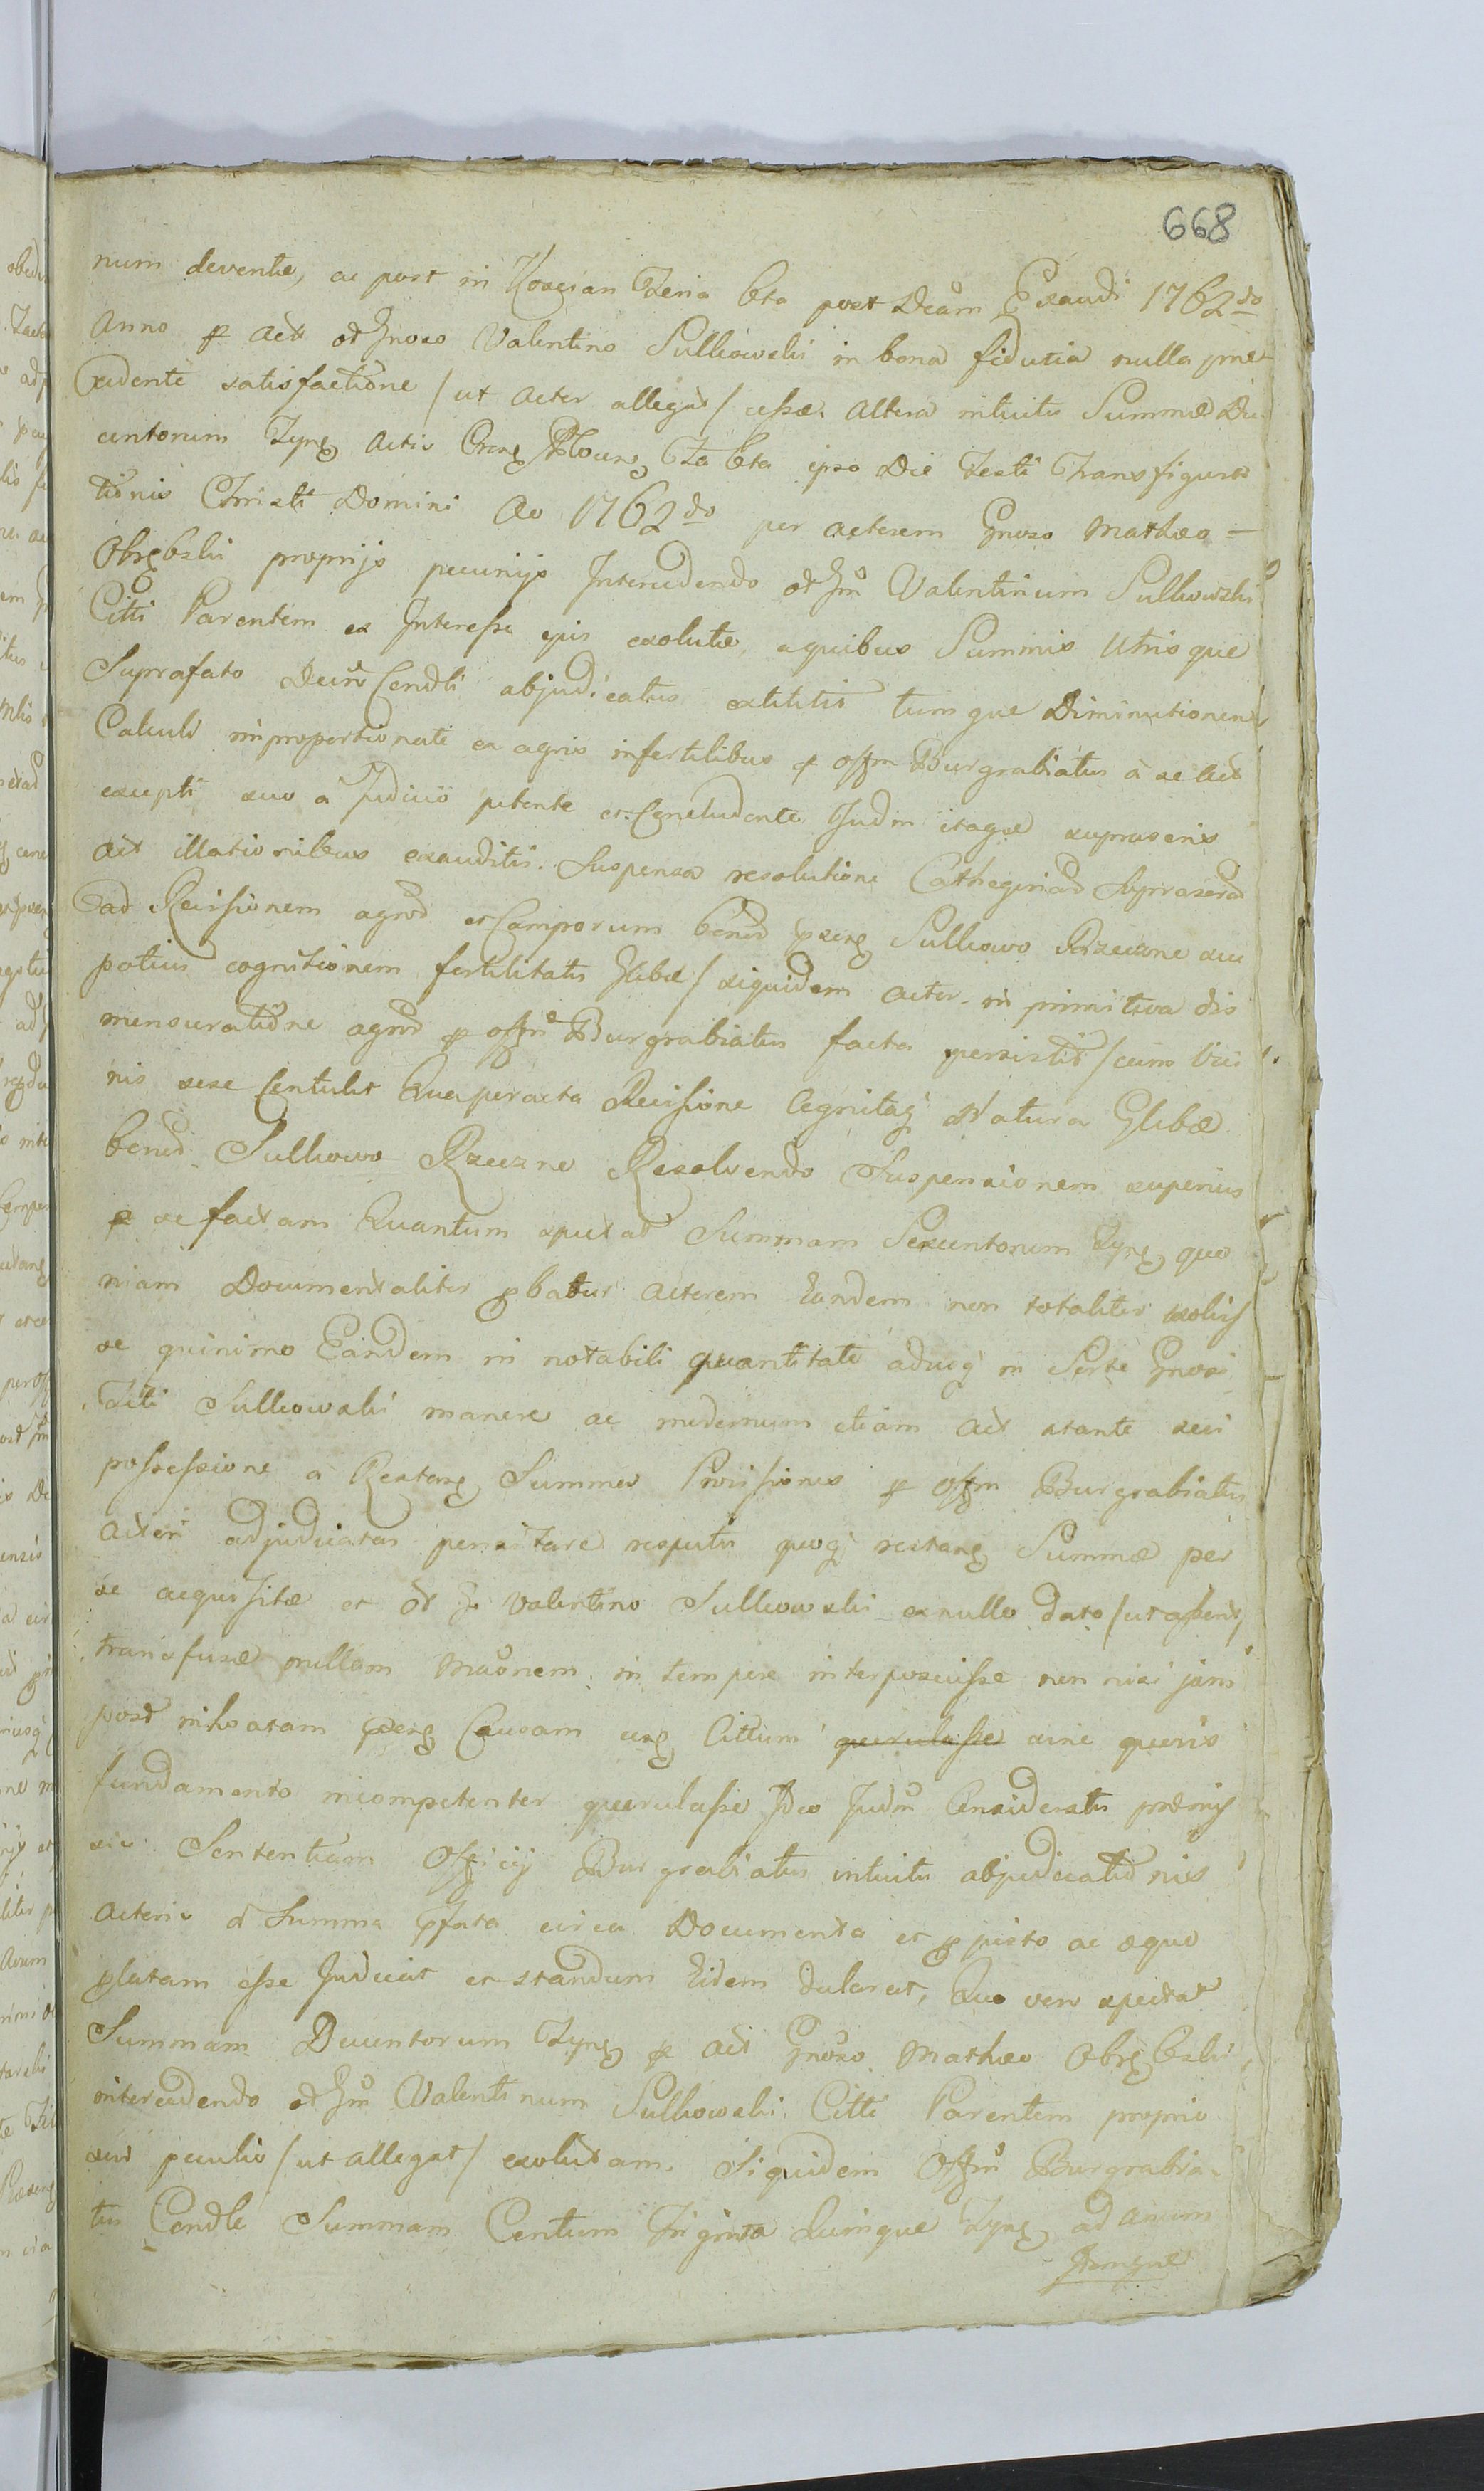 668
num devente, ac post in Roxcian Feria 6ta post Dcam Exaudi 1762do
Anno p Act od Gnoso Valentino Sulkowski in bona fidutia nulla præ
cedente satisfactione / ut Actor allegat / cessæ. Altera intuitu Summæ Du
centorum Tynf Actis Feria 6ta ipso Die Festi Transfigura
tionis Christi Domini Ao 1762do per actorem Gnoso Mathæo =
Obrębski proprijs pecunijs Intercedendo od Gm Valentinum Sulkowski
Citti Parentem ex Interesse ejus exolutæ, a quibus Summis Utrisque
Suprafato Decreto Condli abjudicatus extitit tum que Diminutionem
Calculi improportionati ex agris infertilibus p Offm Burgrabiatus à se Act
excepti suo à Judicio petente et Concludente Judm itaque supraseris
Act illationibus exauditis. Suspensa resolutione Cathegoriad Suprascrad
ad Revisionem agrod et Camporum bonod Sulkowo Rzeczne seu
potius cognitionem fertilitatis Glebæ / siquidem actor in primitiva dis
mensuratione agrod p offm Burgrabiatus facta persistit / cum Vici
nis sese Contulit Qua peracta Revisione Cognitaq Natura Glebæ
bonod Sulkowo Rzeczne Resolvendo Suspensionem superius
p se factam Quantum spectat Summam Sexcentorum Tynf quo
niam Documentaliter pbatur actorem Eandem non totaliter exoluis
se quinimo Eandem in notabili quantitate aducq in Sorte Gnosi
Citti Sulkowski manere ac modernum etiam Act stante sui
possessione à Restanf Summa Provisiones p Offm Burgrabiatus
Actori adjudicatas pensitare respectu quoq restanf Summæ per
se acquisitæ et od G Valentino Sulkowski ex nullo dato / ut asserit /
transfusæ nullam maonem in tempore interposuisse non nisi jam
post inchoatam Causam Cittum querulasse sine queris
fundamento incompetenter querulasse Ideo Judm Consideratis præmis
sis Sententiam Officij Burgrabiatus intuitu abjudicationis
Actoris à Summa pfata circa Documenta et p justo ac æquo
platam esse Judicat et standum Eidem dularat, Quo vero spectat
Summam Ducentorum Tynf p Act Gnoso Mathæo Obrębski
intercedendo od Gm Valentinum Sulkowski Citti Parentem proprio
suo peculio / ut allegat / exolutam. Siquidem Offm Burgrabia-
tus Condle Summam Centum Triginta Quinque Tynf ad